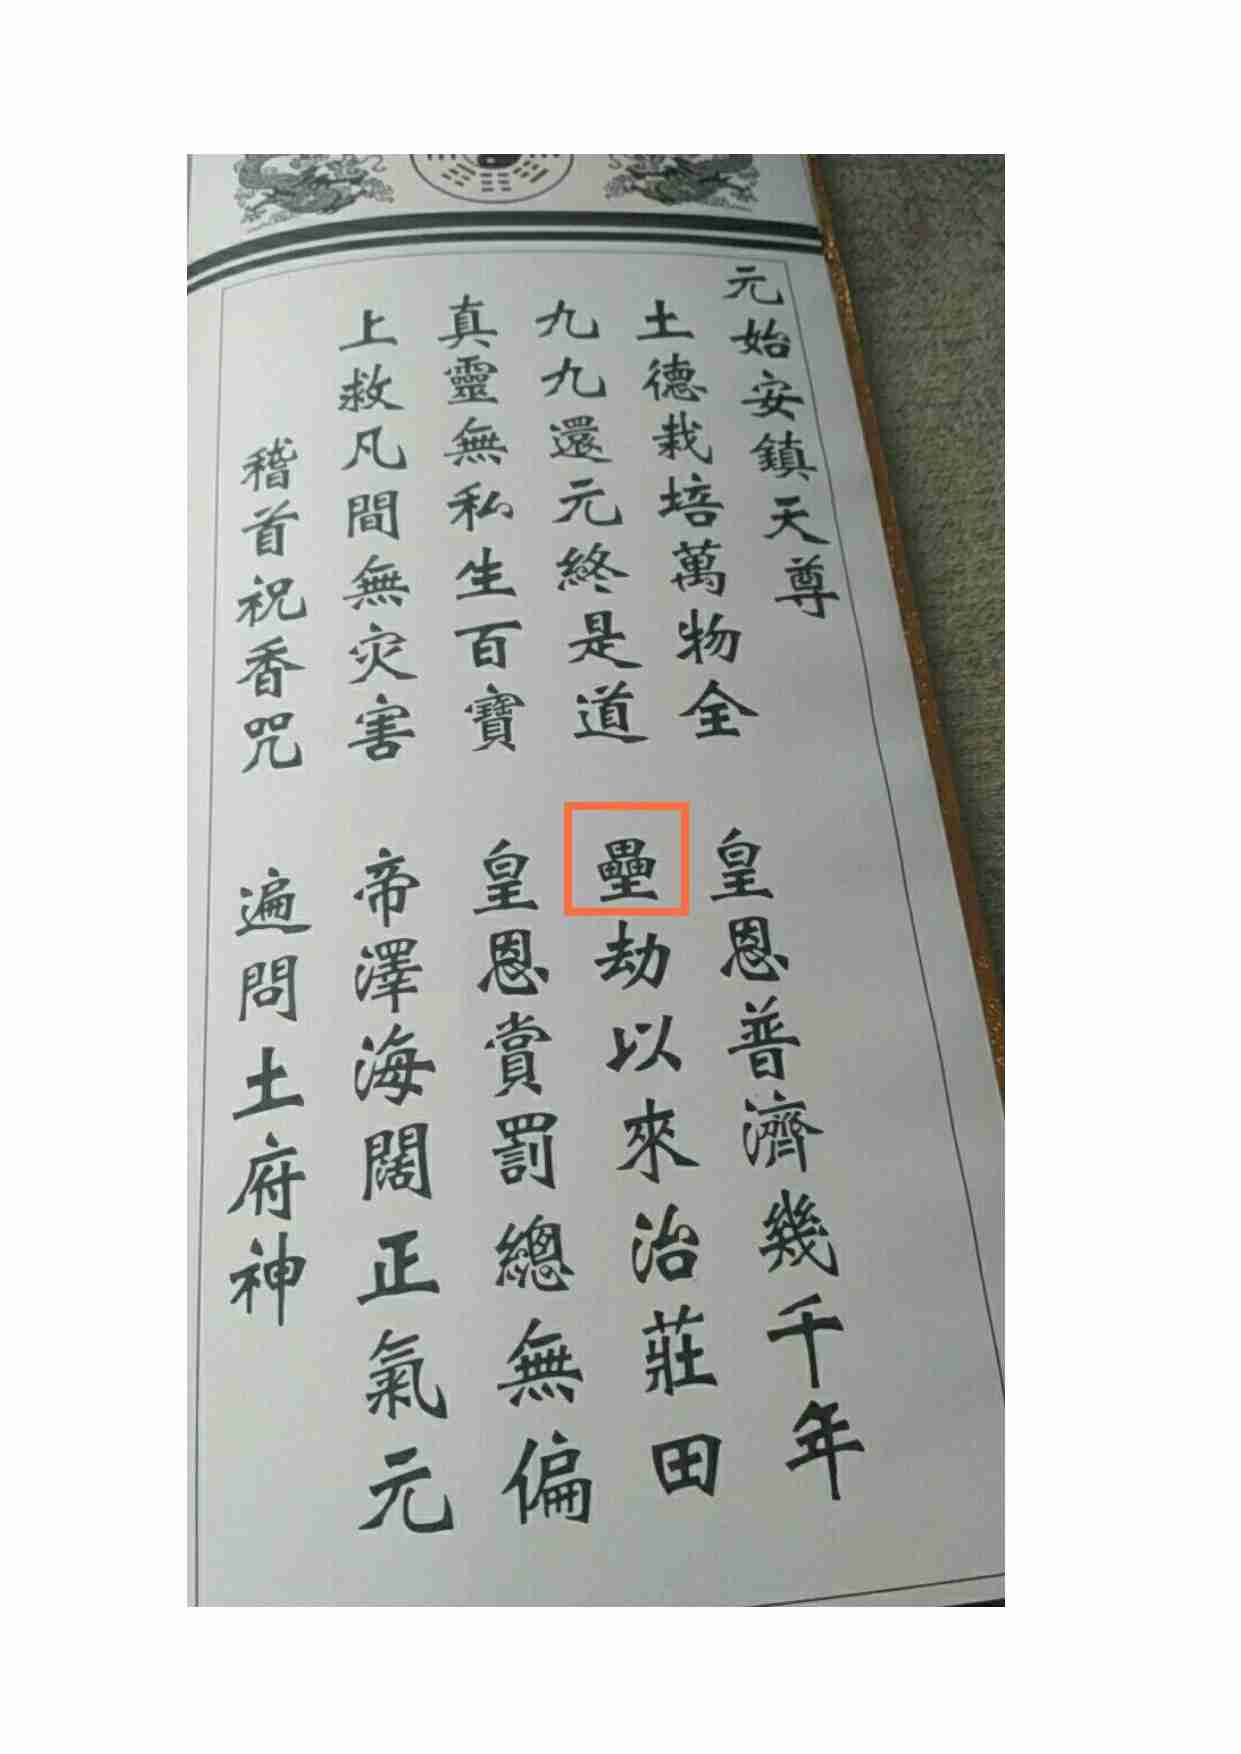 元始安鎮天尊
土德栽培萬物全
皇恩普濟幾千年
九九還元終是道
壘劫以來治莊田
真靈無私生百寶
皇恩賞罰總無偏
上救凡間無灾害
帝澤海闊正氣元
稽首祝香咒
遍問土府神